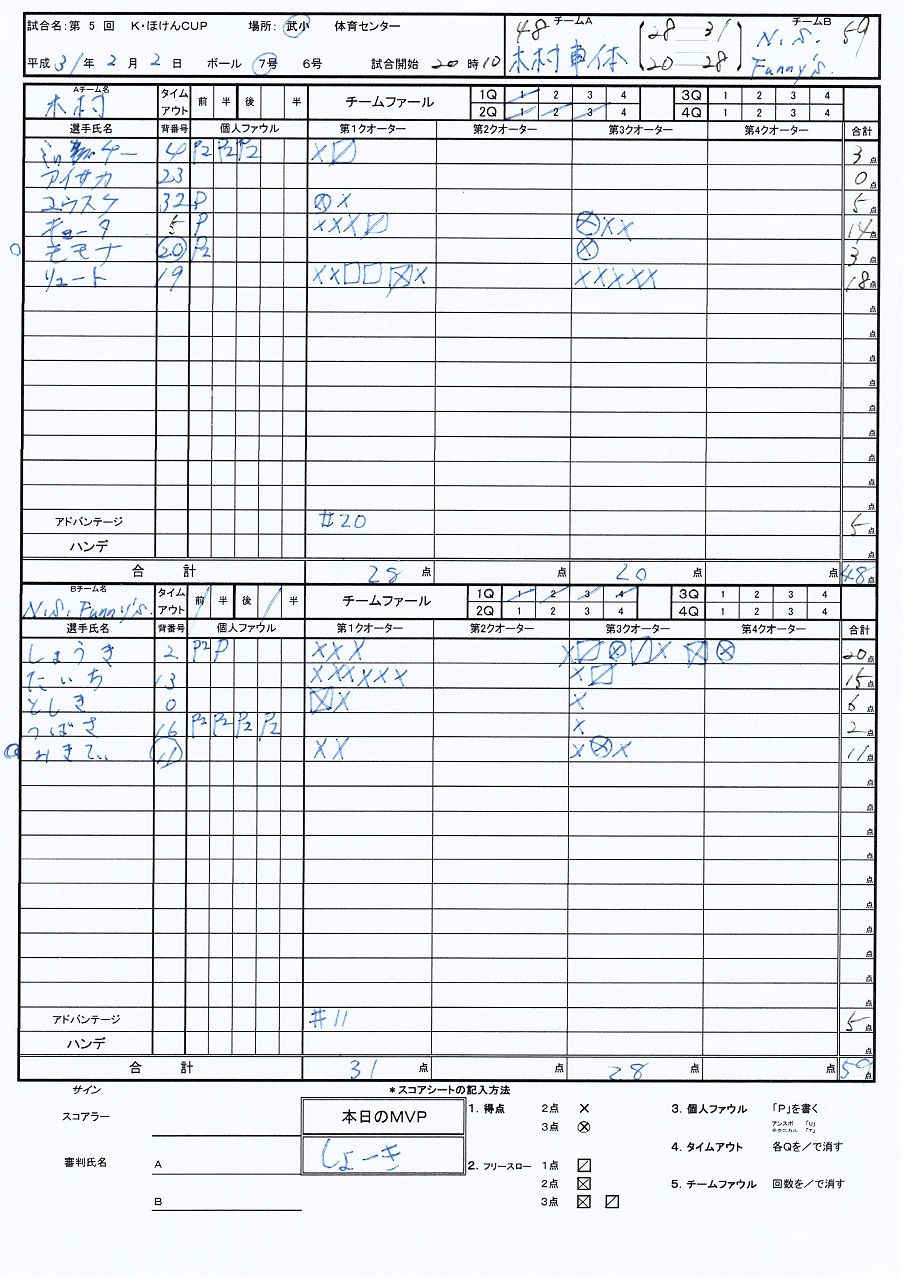 試合名:第 5 回 K・ほけんCUP 場所: 武小 体育センター
48 チームA 28 31 チームB 59
木村車体 20 28 N.S. Funny's.
平成 31 年 2 月 2 日 ボール 7号 6号 試合開始 20 時 10
Aチーム名 木村 タイムアウト 前 半 後 半 チームファール 1Q 1 2 3 4 3Q 1 2 3 4
2Q 1 2 3 4 4Q 1 2 3 4
選手氏名 背番号 個人ファウル 第1クオーター 第2クオーター 第3クオーター 第4クオーター 合計
4 P2 P2 P2 3点
アイサカ 23 0点
ユウスケ 32 P 5点
キョータ 5 P 14点
モモナ 20 P2 3点
リュート 19 18点
点
点
点
点
点
点
点
点
点
アドバンテージ #20 5点
ハンデ 点
合 計 28 点 点 20 点 点 48点
Bチーム名 N.S. Funny's. タイムアウト 前 半 後 半 チームファール 1Q 1 2 3 4 3Q 1 2 3 4
2Q 1 2 3 4 4Q 1 2 3 4
選手氏名 背番号 個人ファウル 第1クオーター 第2クオーター 第3クオーター 第4クオーター 合計
しょうき 2 P2 P 20点
たいち 13 15点
としき 0 6点
つばさ 16 P2 P2 P2 P2 2点
おきてぃ 11 11点
点
点
点
点
点
点
点
点
点
点
アドバンテージ #11 5点
ハンデ 点
合 計 31 点 点 28 点 点 59点
サイン
スコアラー
審判氏名 A
B
本日のMVP
しょーき
*スコアシートの記入方法
1. 得点 2点 ×
3点 ⊗
2. フリースロー 1点
2点
3点
3. 個人ファウル 「P」を書く
アンスポ 「U」
テクニカル 「T」
4. タイムアウト 各Qを/で消す
5. チームファウル 回数を/で消す